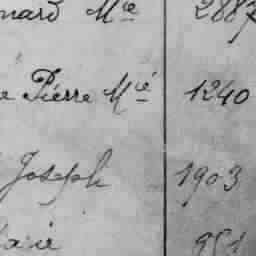 nard Mie 2887
e Pierre Mié 1240
Joseph 1903
951